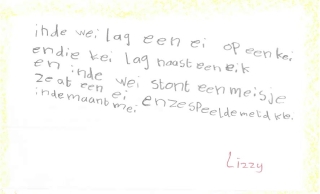 inde wei lag een ei op een kei
en die kei lag naast een eik
en inde wei stont een meisje
ze at een ei en ze speelde met d klei
in de maant mei
Lizzy